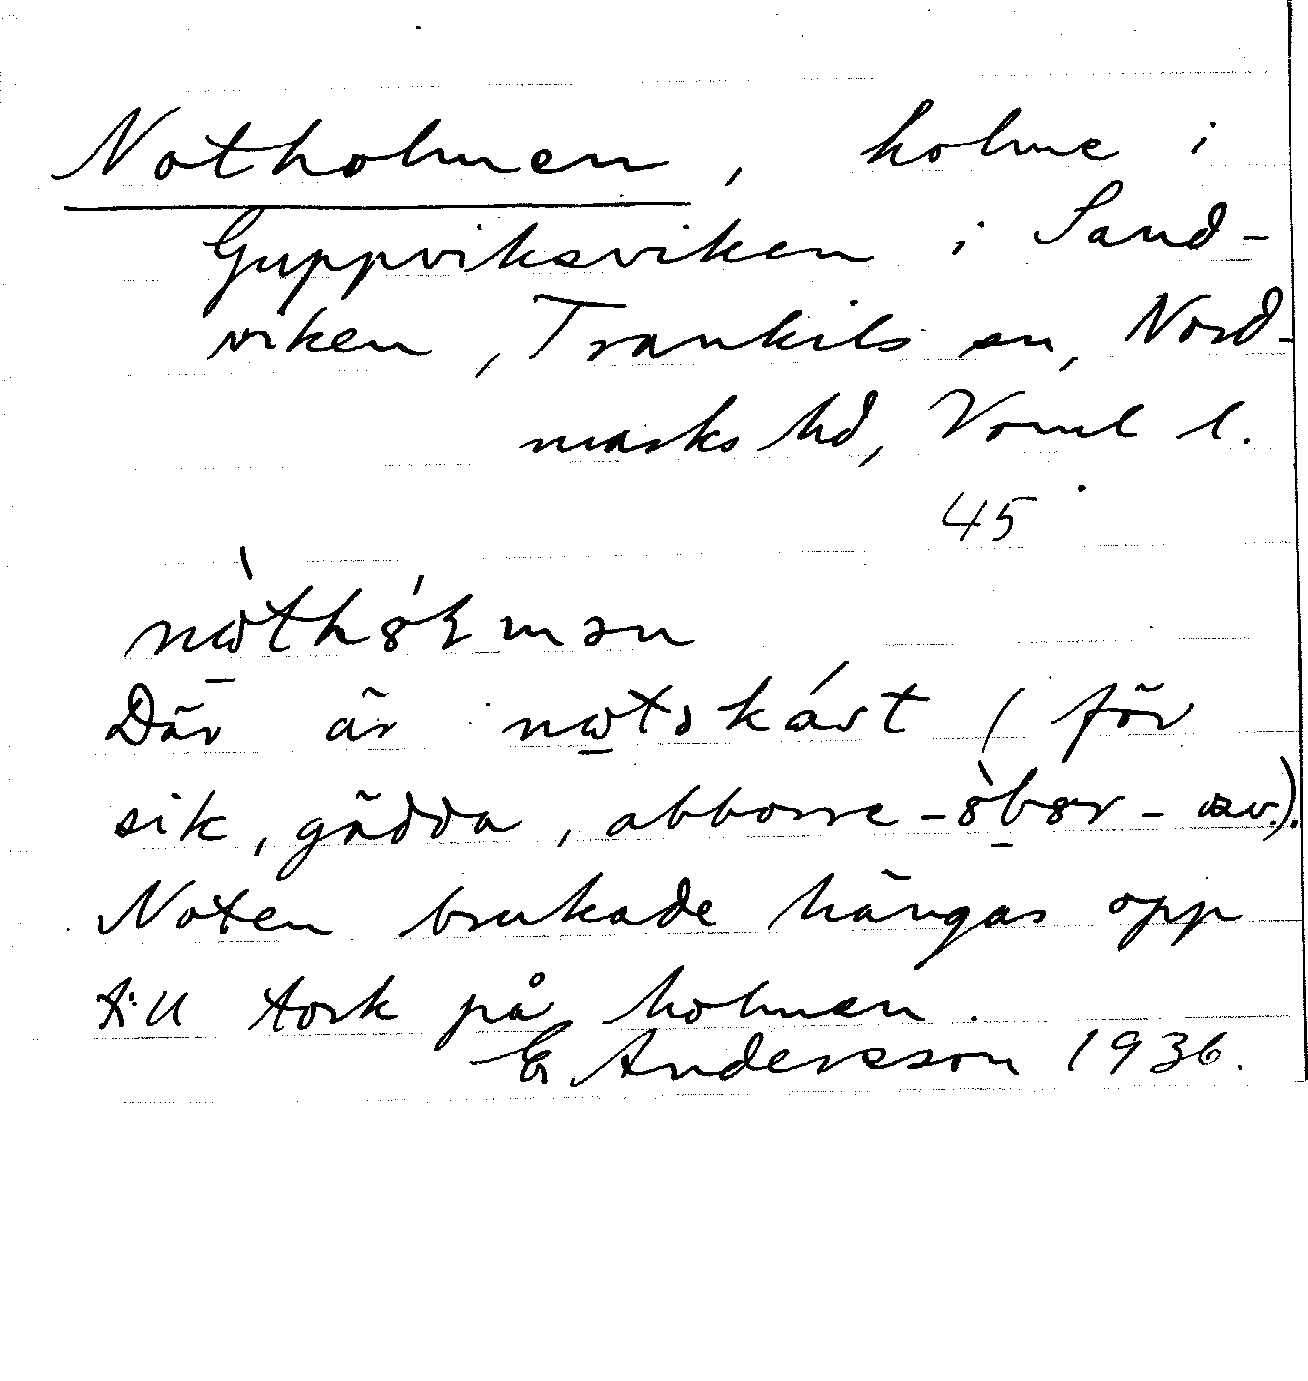 Notholmen, holme i
Guppviksviken i Sand-
viken, Trankils sn, Nord-
marks hd, Värml l.
45
nὼthȣ́ɽmən
Där är nωtəkást (för
sik, gädda, abborre - ȣ̀bȣr - osv.).
Noten brukade hängas opp
till tork på holmen.
E Andersson 1936.